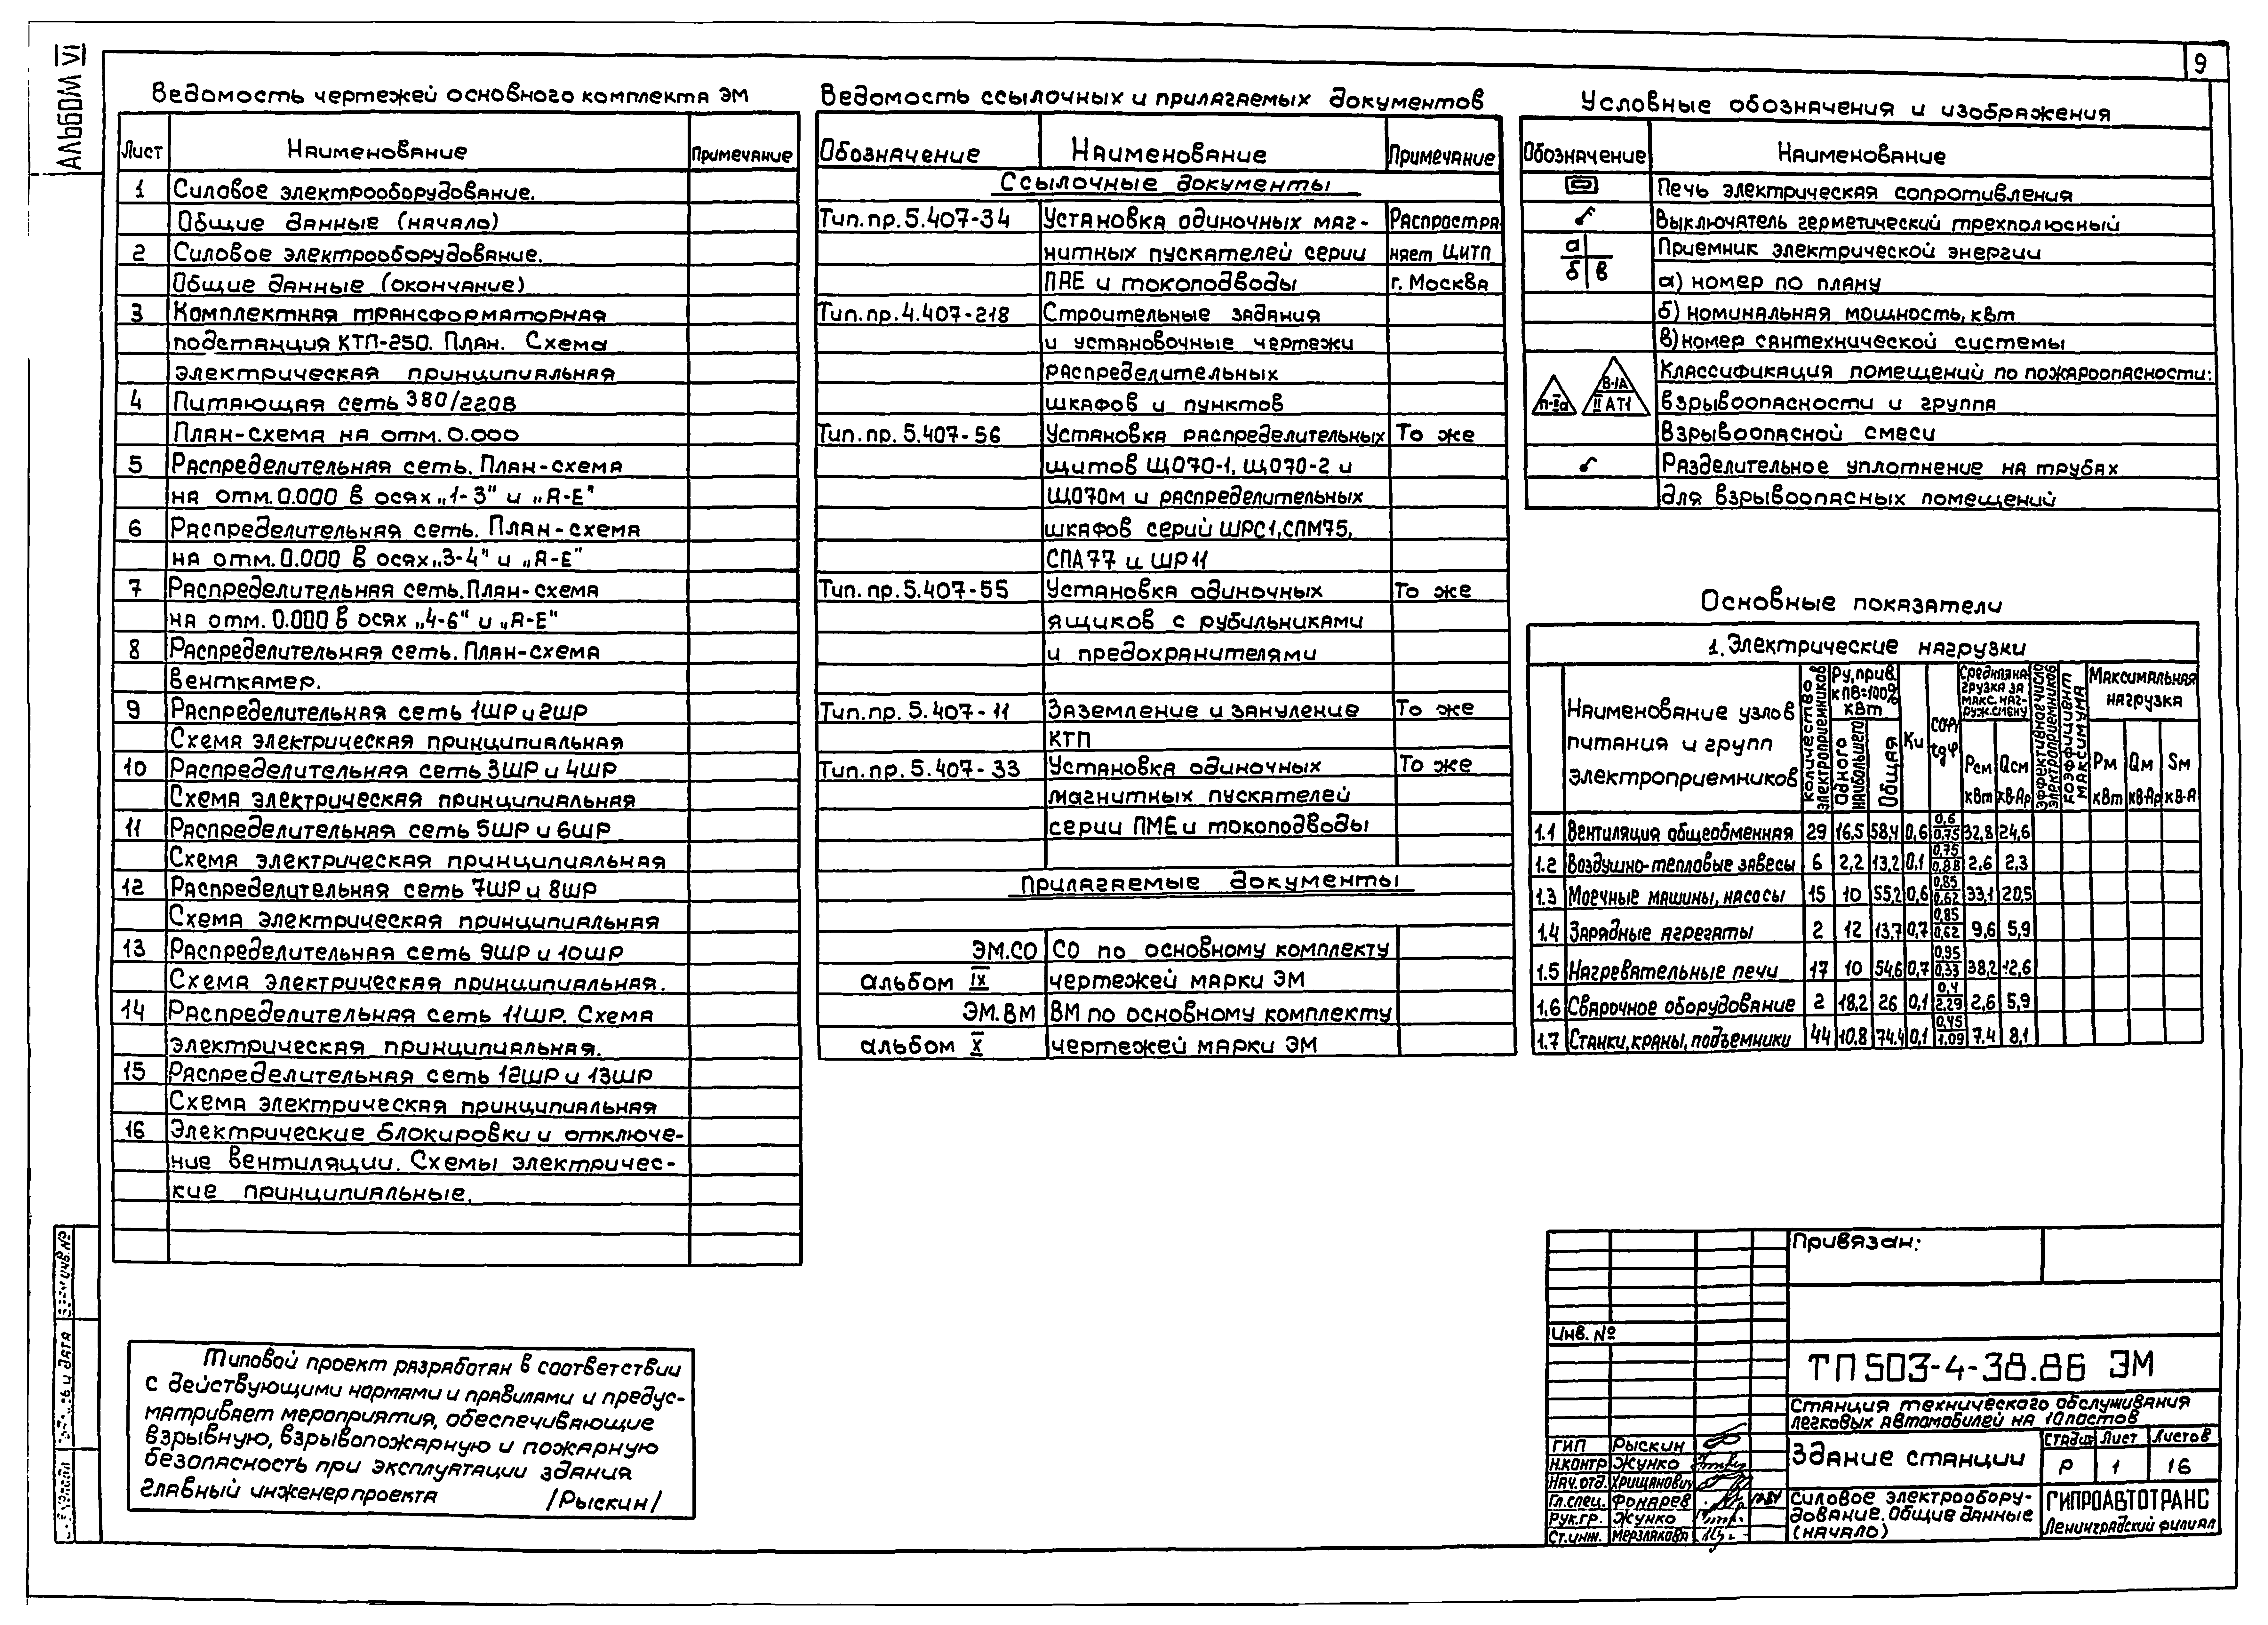 Альбом VI
9
Ведомость чертежей основного комплекта ЭМ
Лист Наименование Примечание
1 Силовое электрооборудование.
Общие данные (начало)
2 Силовое электрооборудование.
Общие данные (окончание)
3 Комплектная трансформаторная
подстанция КТП-250. План. Схема
электрическая принципиальная
4 Питающая сеть 380/220В
План-схема на отм. 0.000
5 Распределительная сеть. План-схема
на отм. 0.000 в осях „1-3" и „А-Е"
6 Распределительная сеть. План-схема
на отм. 0.000 в осях „3-4" и „А-Е"
7 Распределительная сеть. План-схема
на отм. 0.000 в осях „4-6" и „А-Е"
8 Распределительная сеть. План-схема
венткамер.
9 Распределительная сеть 1ШР и 2ШР
Схема электрическая принципиальная
10 Распределительная сеть 3ШР и 4ШР
Схема электрическая принципиальная
11 Распределительная сеть 5ШР и 6ШР
Схема электрическая принципиальная
12 Распределительная сеть 7ШР и 8ШР
Схема электрическая принципиальная
13 Распределительная сеть 9ШР и 10ШР
Схема электрическая принципиальная.
14 Распределительная сеть 11ШР. Схема
электрическая принципиальная.
15 Распределительная сеть 12ШР и 13ШР
Схема электрическая принципиальная
16 Электрические блокировки и отключе-
ние вентиляции. Схемы электричес-
кие принципиальные.
Ведомость ссылочных и прилагаемых документов
Обозначение Наименование Примечание
Ссылочные документы
Тип. пр. 5.407-34 Установка одиночных маг- Распростра
нитных пускателей серии няет ЦИТП
ПАЕ и токоподводы г. Москва
Тип. пр. 4.407-218 Строительные задания
и установочные чертежи
распределительных
шкафов и пунктов
Тип. пр. 5.407-56 Установка распределительных То же
щитов ЩО70-1, ЩО70-2 и
ЩО70м и распределительных
шкафов серий ШРС1, СПМ75,
СПА77 и ШР11
Тип. пр. 5.407-55 Установка одиночных То же
ящиков с рубильниками
и предохранителями
Тип. пр. 5.407-11 Заземление и зануление То же
КТП
Тип. пр. 5.407-33 Установка одиночных То же
магнитных пускателей
серии ПМЕ и токоподводы
Прилагаемые документы
ЭМ.СО СО по основному комплекту
альбом IX чертежей марки ЭМ
ЭМ.ВМ ВМ по основному комплекту
альбом X чертежей марки ЭМ
Условные обозначения и изображения
Обозначение Наименование
Печь электрическая сопротивления
Выключатель герметический трехполюсный
а б в Приемник электрической энергии
а) номер по плану
б) номинальная мощность, квт
в) номер сантехнической системы
П-IIа В-Iа II АТ1 Классификация помещений по пожароопасности:
взрывоопасности и группа
взрывоопасной смеси
Разделительное уплотнение на трубах
для взрывоопасных помещений
Основные показатели
1. Электрические нагрузки
Наименование узлов питания и групп электроприемников
Количество электроприемников
Ру, прив. к ПВ=100% квт
Одного наибольшего
Общая
Ки
cosφ/tgφ
Средняя нагрузка за макс. нагруж. смену
Рсм квт
Qсм кв·Ар
Эффективное число электроприемников
Коэффициент максимума
Максимальная нагрузка
Рм квт
Qм кв·Ар
Sм кв·А
1.1 Вентиляция общеобменная 29 16,5 58,4 0,6 0,6/0,75 32,8 24,6
1.2 Воздушно-тепловые завесы 6 2,2 13,2 0,1 0,75/0,88 2,6 2,3
1.3 Моечные машины, насосы 15 10 55,2 0,6 0,85/0,62 33,1 20,5
1.4 Зарядные агрегаты 2 12 13,7 0,7 0,85/0,62 9,6 5,9
1.5 Нагревательные печи 17 10 54,6 0,7 0,95/0,33 38,2 12,6
1.6 Сварочное оборудование 2 18,2 26 0,1 0,4/2,29 2,6 5,9
1.7 Станки, краны, подъемники 44 10,8 74,4 0,1 0,45/1.09 7.4 8,1
Типовой проект разработан в соответствии
с действующими нормами и правилами и предус-
матривает мероприятия, обеспечивающие
взрывную, взрывопожарную и пожарную
безопасность при эксплуатации здания
главный инженер проекта /Рыскин/
Привязан:
Инв. №
ТП 503-4-38.86 ЭМ
Станция технического обслуживания
легковых автомобилей на 10 постов
ГИП Рыскин
Н.контр Жунко
Нач.отд. Хрищанович
Гл.спец. Фонарев
Рук.гр. Жунко
Ст.инж. Мерзлякова
Здание станции
Стадия Лист Листов
Р 1 16
Силовое электрообору-
дование. Общие данные
(начало)
ГИПРОАВТОТРАНС
Ленинградский филиал